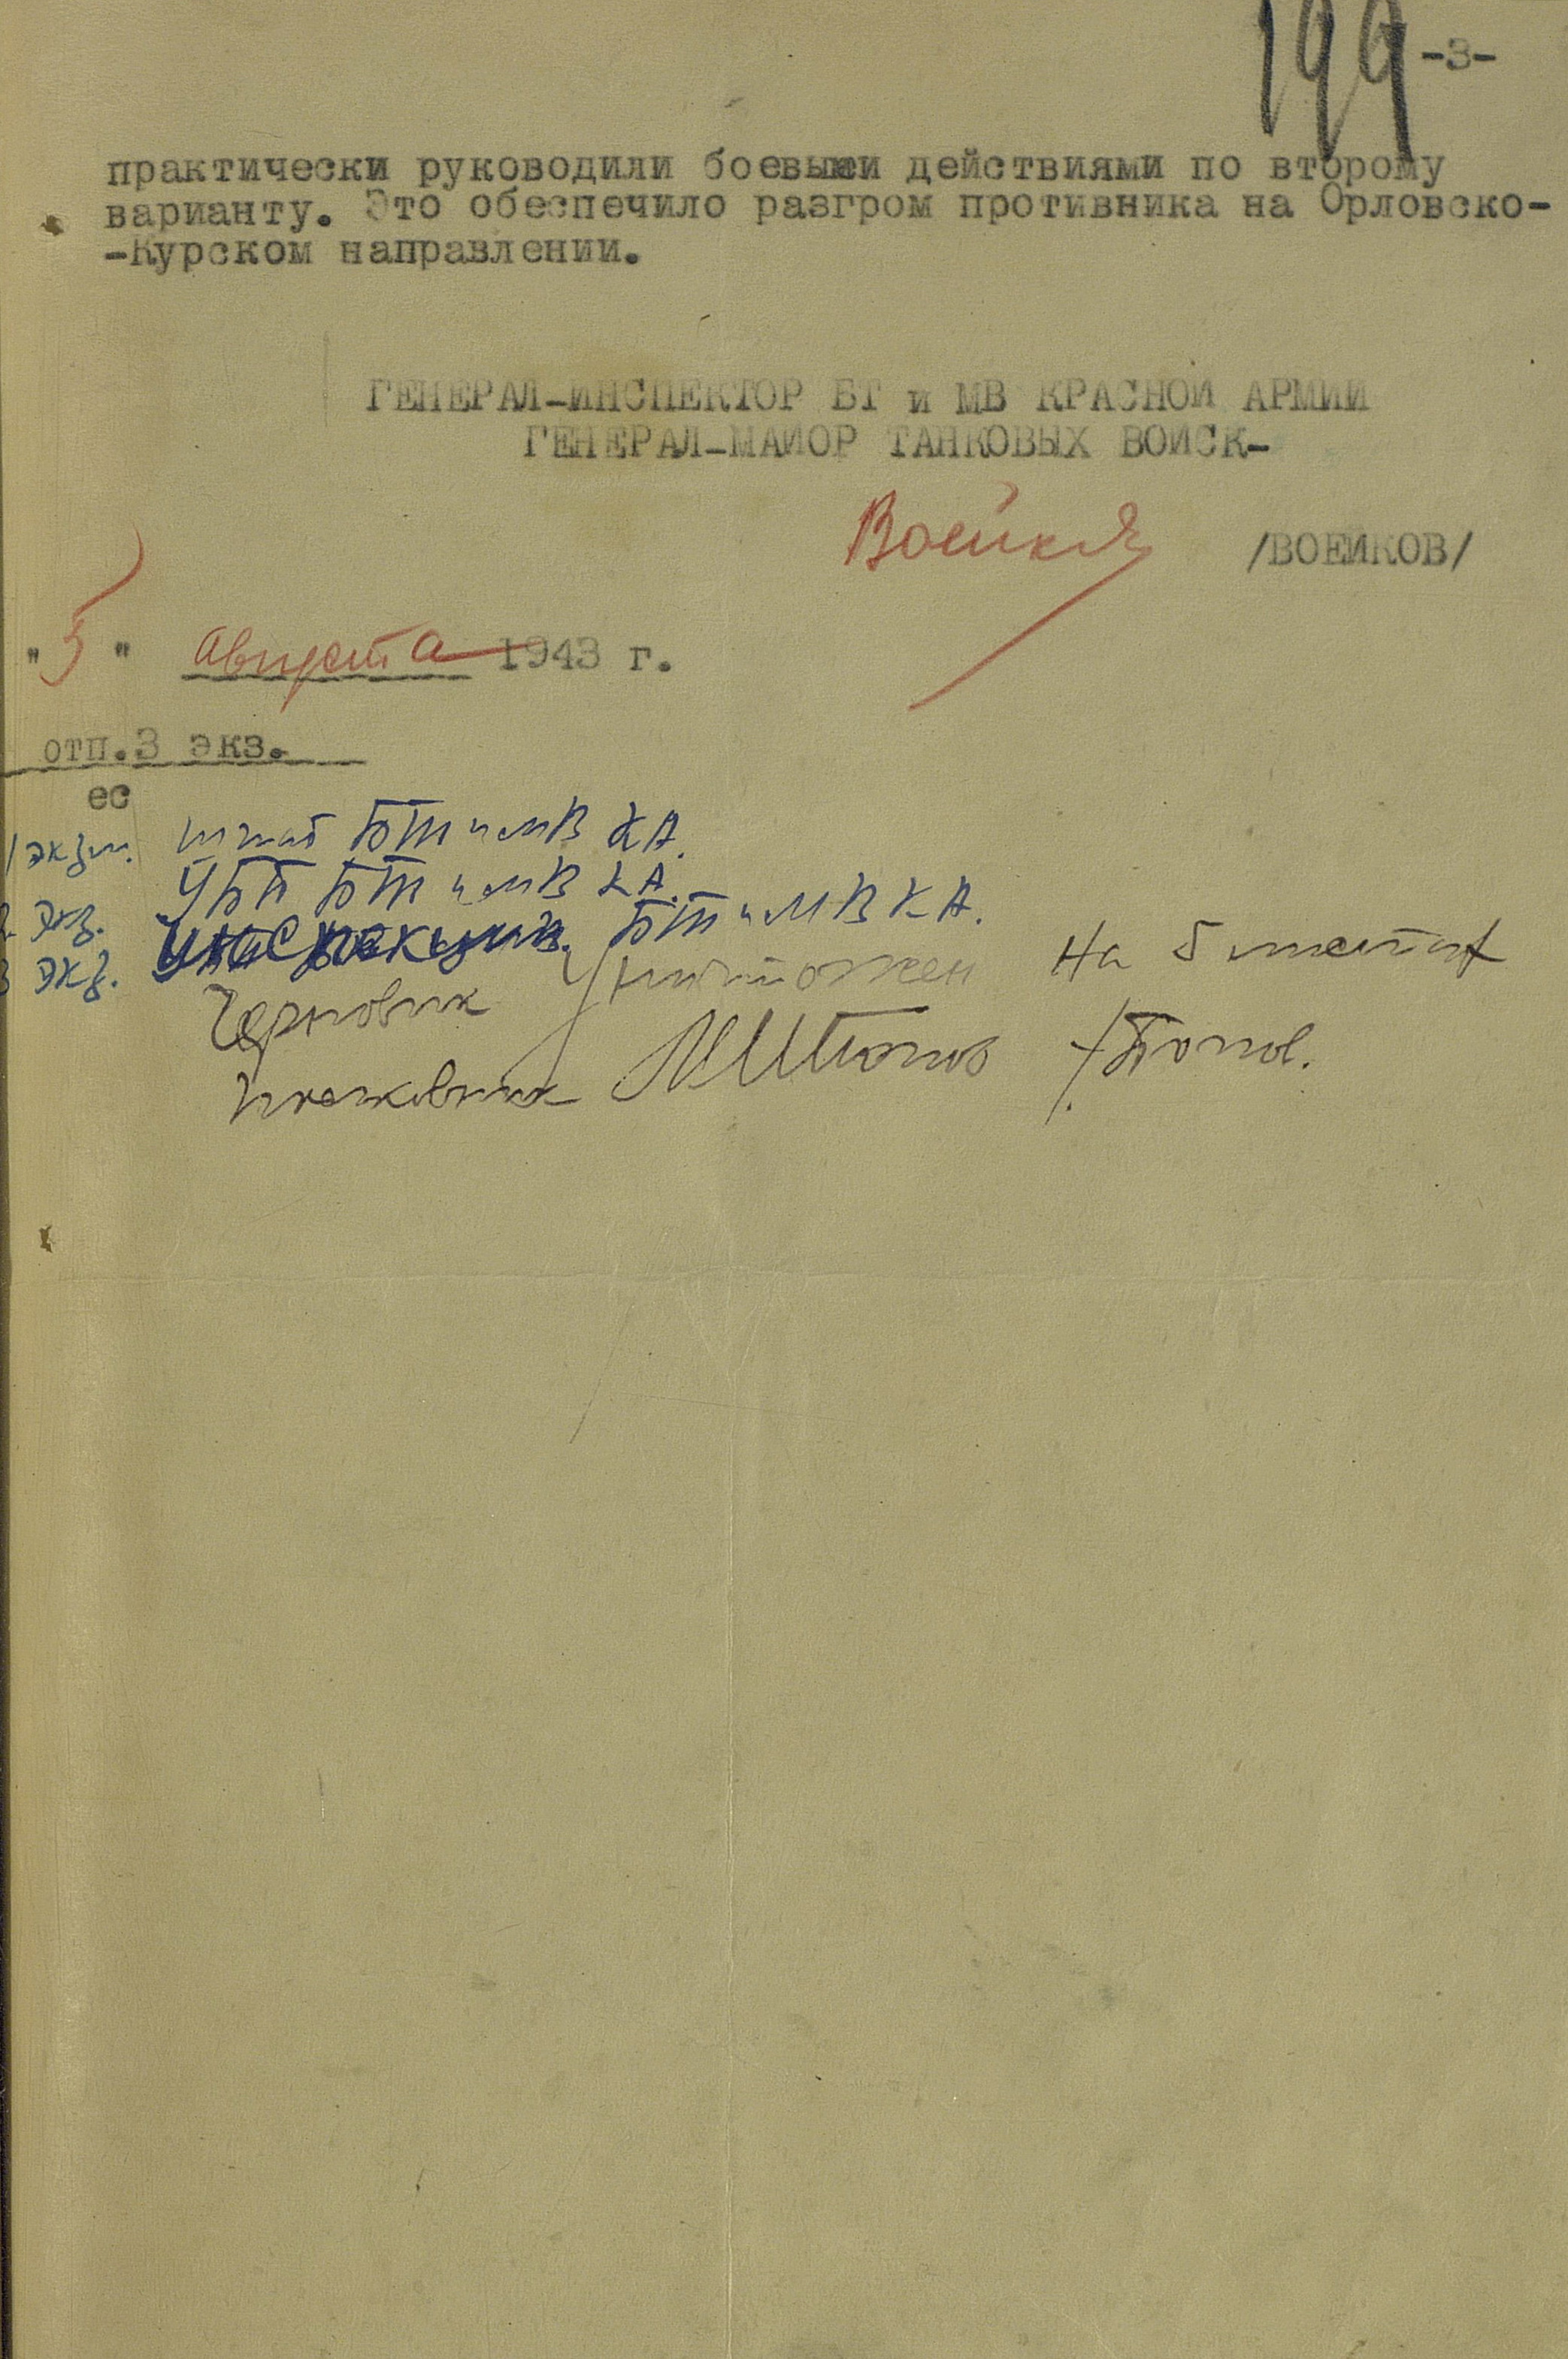 199 -3-
практически руководили боевыми действиями по второму
варианту. Это обеспечило разгром противника на Орловско-
-Курском направлении.
ГЕНЕРАЛ-ИНСПЕКТОР БТ и МВ КРАСНОЙ АРМИИ
ГЕНЕРАЛ-МАЙОР ТАНКОВЫХ ВОЙСК-
Воейков /ВОЕЙКОВ/
"5" августа 1943 г.
отп.3 экз.
ес
1 экз. штаб БТ и МВ КА.
2 экз. УБП БТ и МВ КА.
3 экз. Инспекция БТ и МВ КА.
Черновик уничтожен на 5 листах
полковник /Попов.